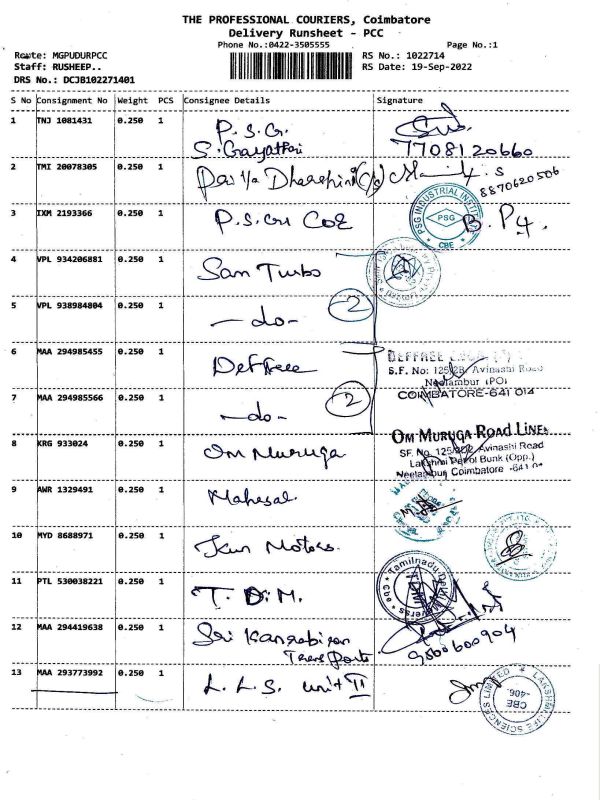 THE PROFESSIONAL COURIERS, Coimbatore
Delivery Runsheet - PCC
Phone No.:0422-3505555
Page No.:1
Route: MGPUDURPCC
RS No.: 1022714
Staff: RUSHEEP..
RS Date: 19-Sep-2022
DRS No.: DCJB102271401
S No Consignment No Weight PCS Consignee Details Signature
1 TNJ 1081431 0.250 1 P.S.G.
S. Gayathri 7708120660
2 TMI 20078305 0.250 1
8870620506
3 IXM 2193366 0.250 1 P.S.G CoE
PSG INDUSTRIAL INSTITUTE PSG CBE
4 VPL 934206881 0.250 1 Sam Turbo
5 VPL 938984804 0.250 1 -do- 2
6 MAA 294985455 0.250 1 Deffree
DEFFREE
S.F. No: 125/2B, Avinashi Road
Neelambur (PO)
COIMBATORE-641 014
7 MAA 294985566 0.250 1 -do- 2
8 KRG 933024 0.250 1 Om Muruga
OM MURUGA ROAD LINES
SF. No. Avinashi Road
Lakshmi Petrol Bunk (Opp.)
Neelambur Coimbatore
9 AWR 1329491 0.250 1
10 MYD 8688971 0.250 1 Motors
11 PTL 530038221 0.250 1 T.D.M.
Tamilnadu Cbe
12 MAA 294419638 0.250 1 Sri
Transports 9500600904
13 MAA 293773992 0.250 1 L.L.S. unit II
LAKSHMI LIFE SCIENCES LIMITED CBE -406.